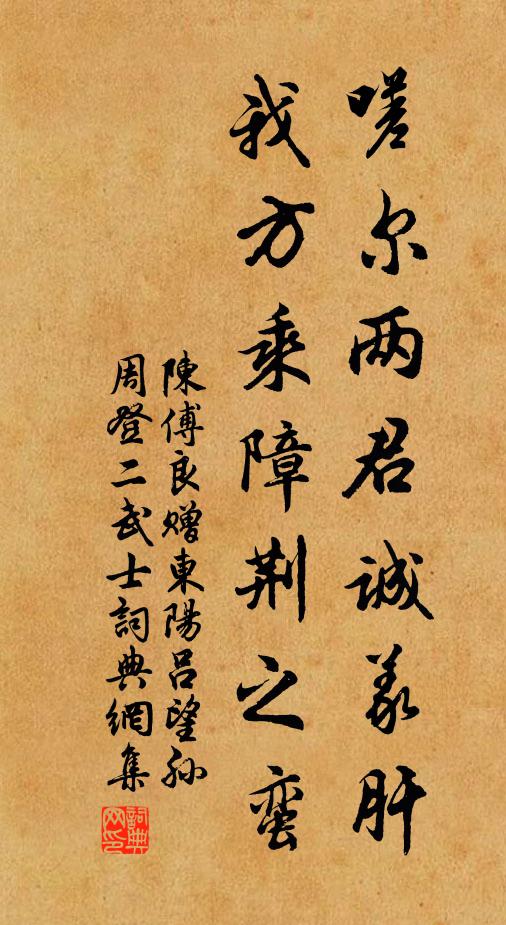 嗟尔两君诚义肝
我方乘障荆之蛮
陳傅良贈東陽吕望孙
周登二武士詞典網集
詞典网印